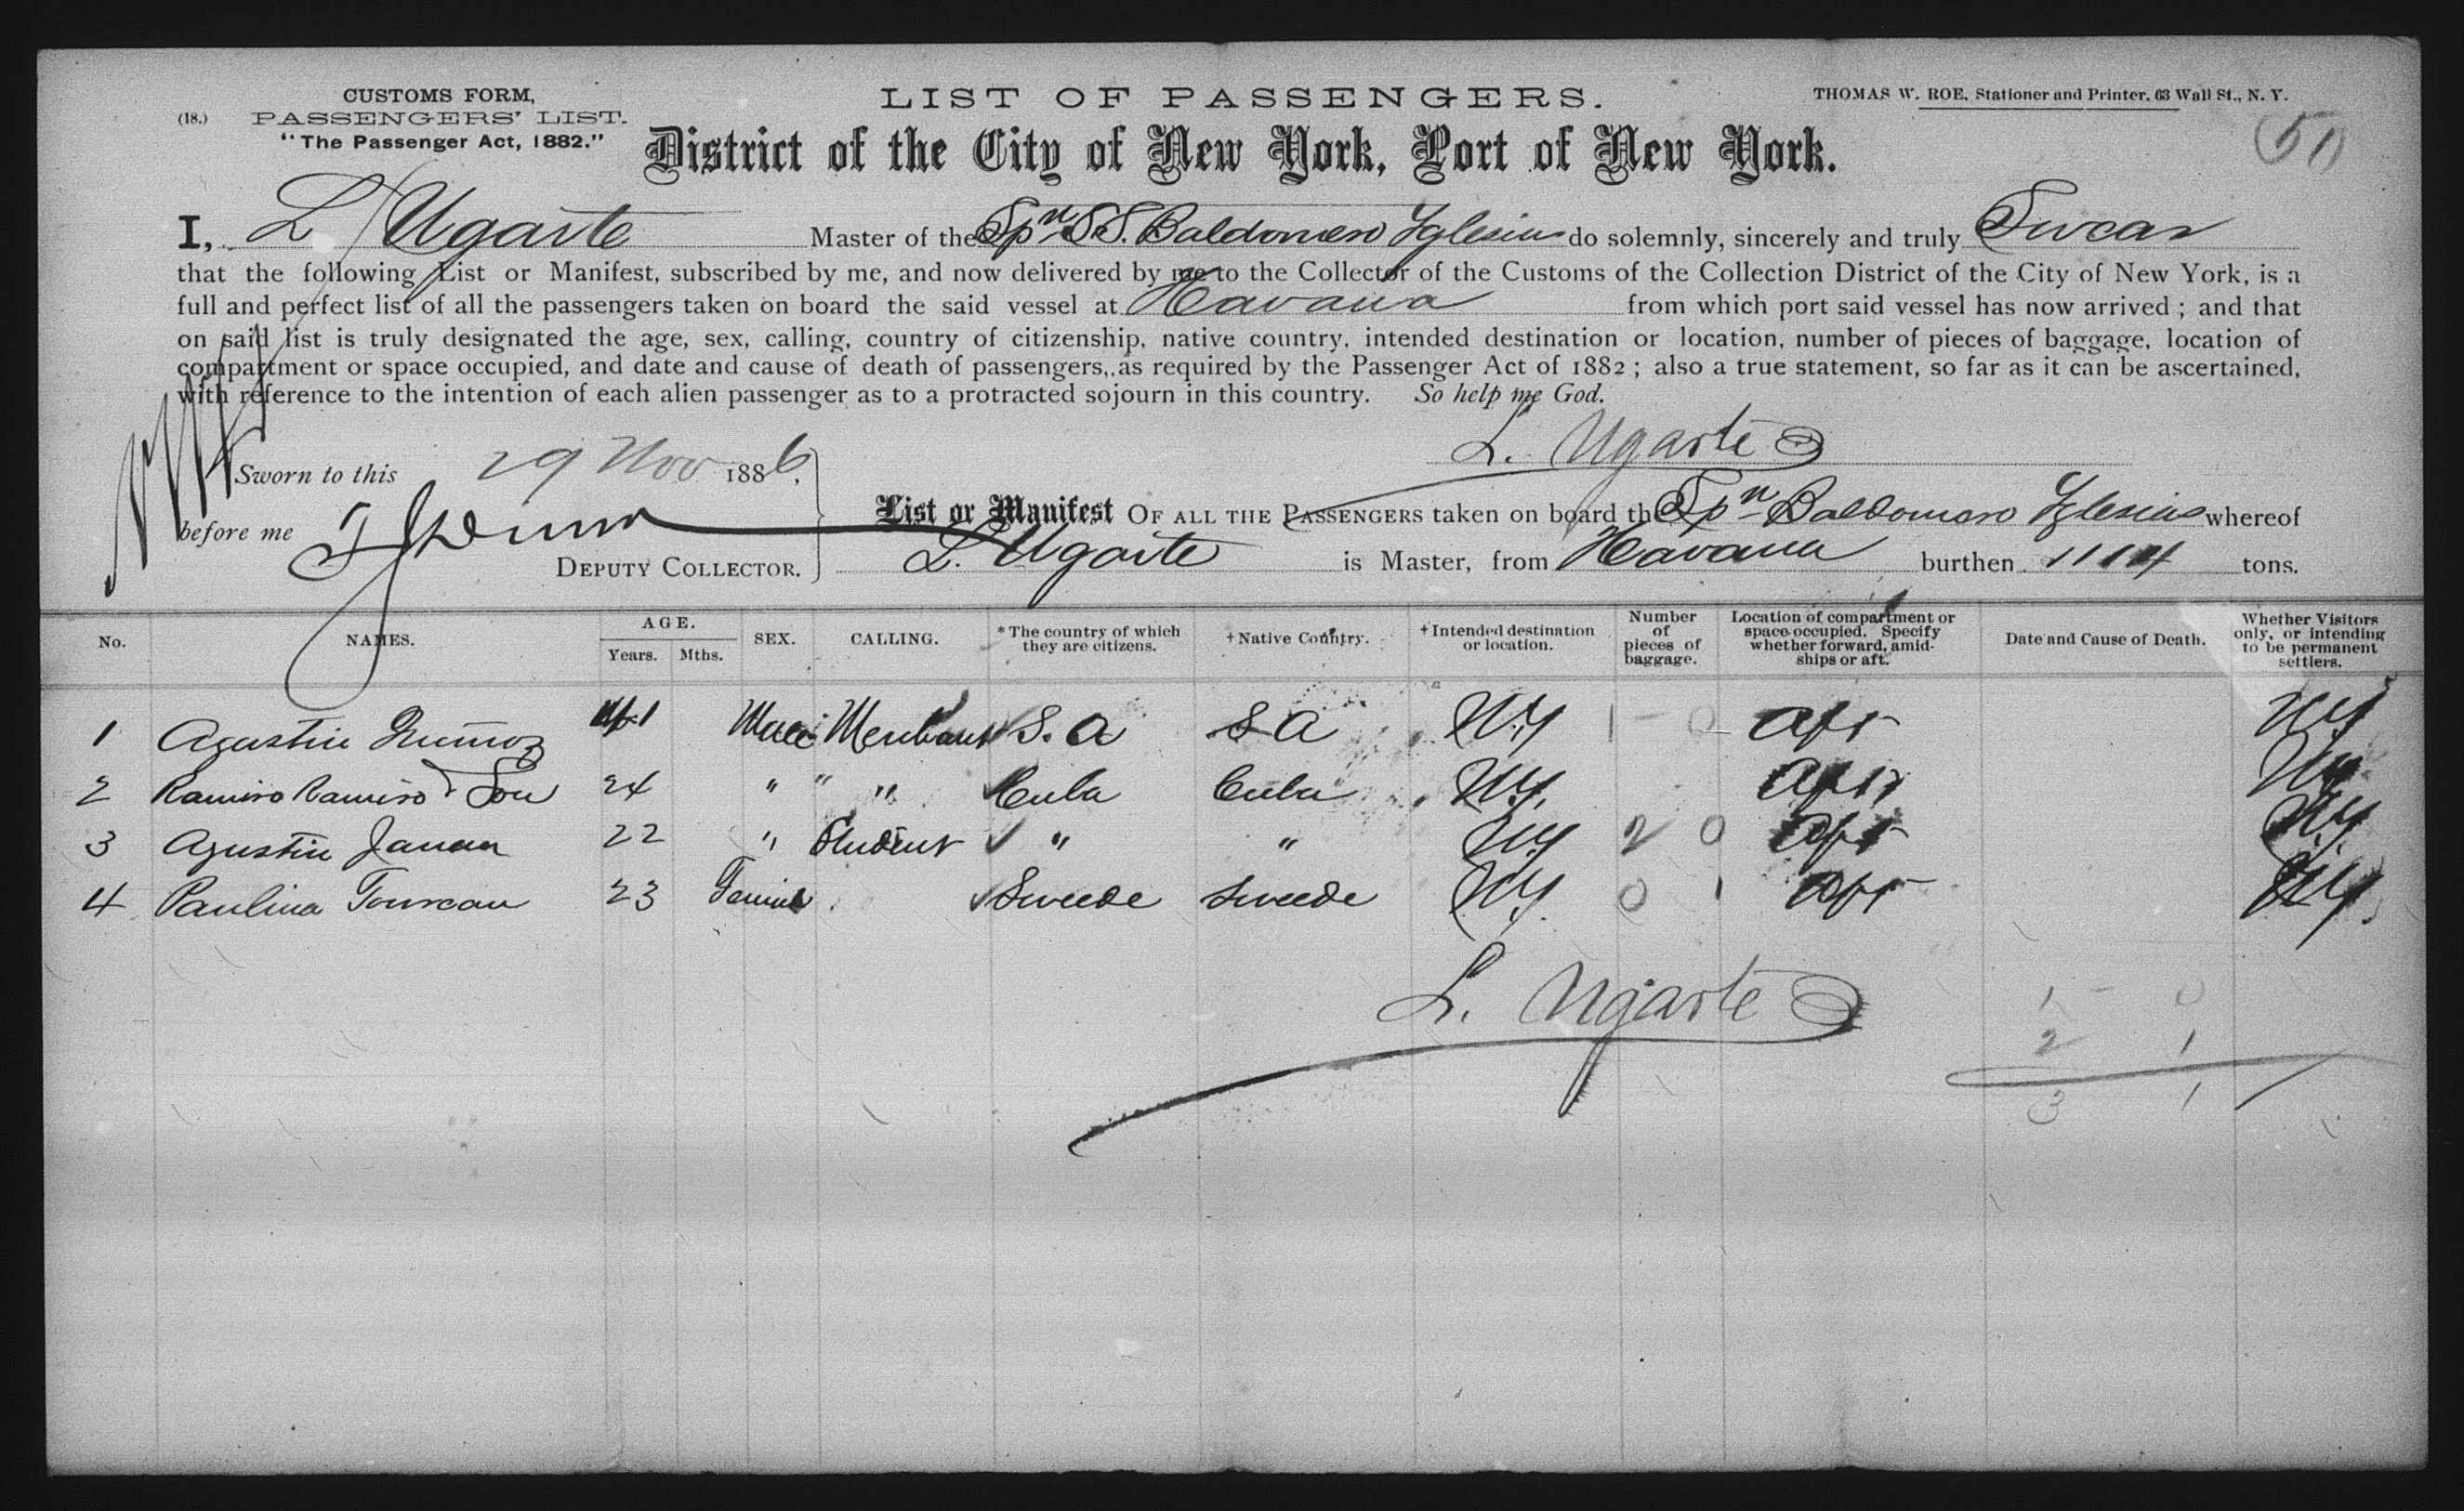 CUSTOMS FORM,
(18.) PASSENGERS' LIST.
"The Passenger Act, 1882."
LIST OF PASSENGERS.
THOMAS W. ROE, Stationer and Printer, 63 Wall St., N. Y.
District of the City of New York, Port of New York.
51
I, L Ugarte Master of the Spn S.S. Baldomero Yglesias do solemnly, sincerely and truly Swear
that the following List or Manifest, subscribed by me, and now delivered by me to the Collector of the Customs of the Collection District of the City of New York, is a
full and perfect list of all the passengers taken on board the said vessel at Havana from which port said vessel has now arrived ; and that
on said list is truly designated the age, sex, calling, country of citizenship, native country, intended destination or location, number of pieces of baggage, location of
compartment or space occupied, and date and cause of death of passengers, as required by the Passenger Act of 1882 ; also a true statement, so far as it can be ascertained,
with reference to the intention of each alien passenger as to a protracted sojourn in this country. So help me God.
L. Ugarte
Sworn to this 29 Nov 1886,
before me
DEPUTY COLLECTOR.
List or Manifest OF ALL THE PASSENGERS taken on board the Spn Baldomero Yglesias whereof
L. Ugarte is Master, from Havana burthen 1114 tons.
No. NAMES. AGE. Years. Mths. SEX. CALLING. *The country of which they are citizens. +Native Country. +Intended destination or location. Number of pieces of baggage. Location of compartment or space occupied. Specify whether forward, amidships or aft. Date and Cause of Death. Whether Visitors only, or intending to be permanent settlers.
1 Agustin 41 Male Merchant S. A S A N.Y 1 - 0 Aft N.Y
2 Ramiro Ramiro & Son 24 " " " Cuba Cuba N.Y. Aft N.Y
3 Agustin 22 " Student " " N.Y 2 0 Aft N.Y
4 Paulina 23 Female Sweede Sweede N.Y. 0 1 Aft N.Y.
L. Ugarte
1 - 0
2 1
3 1